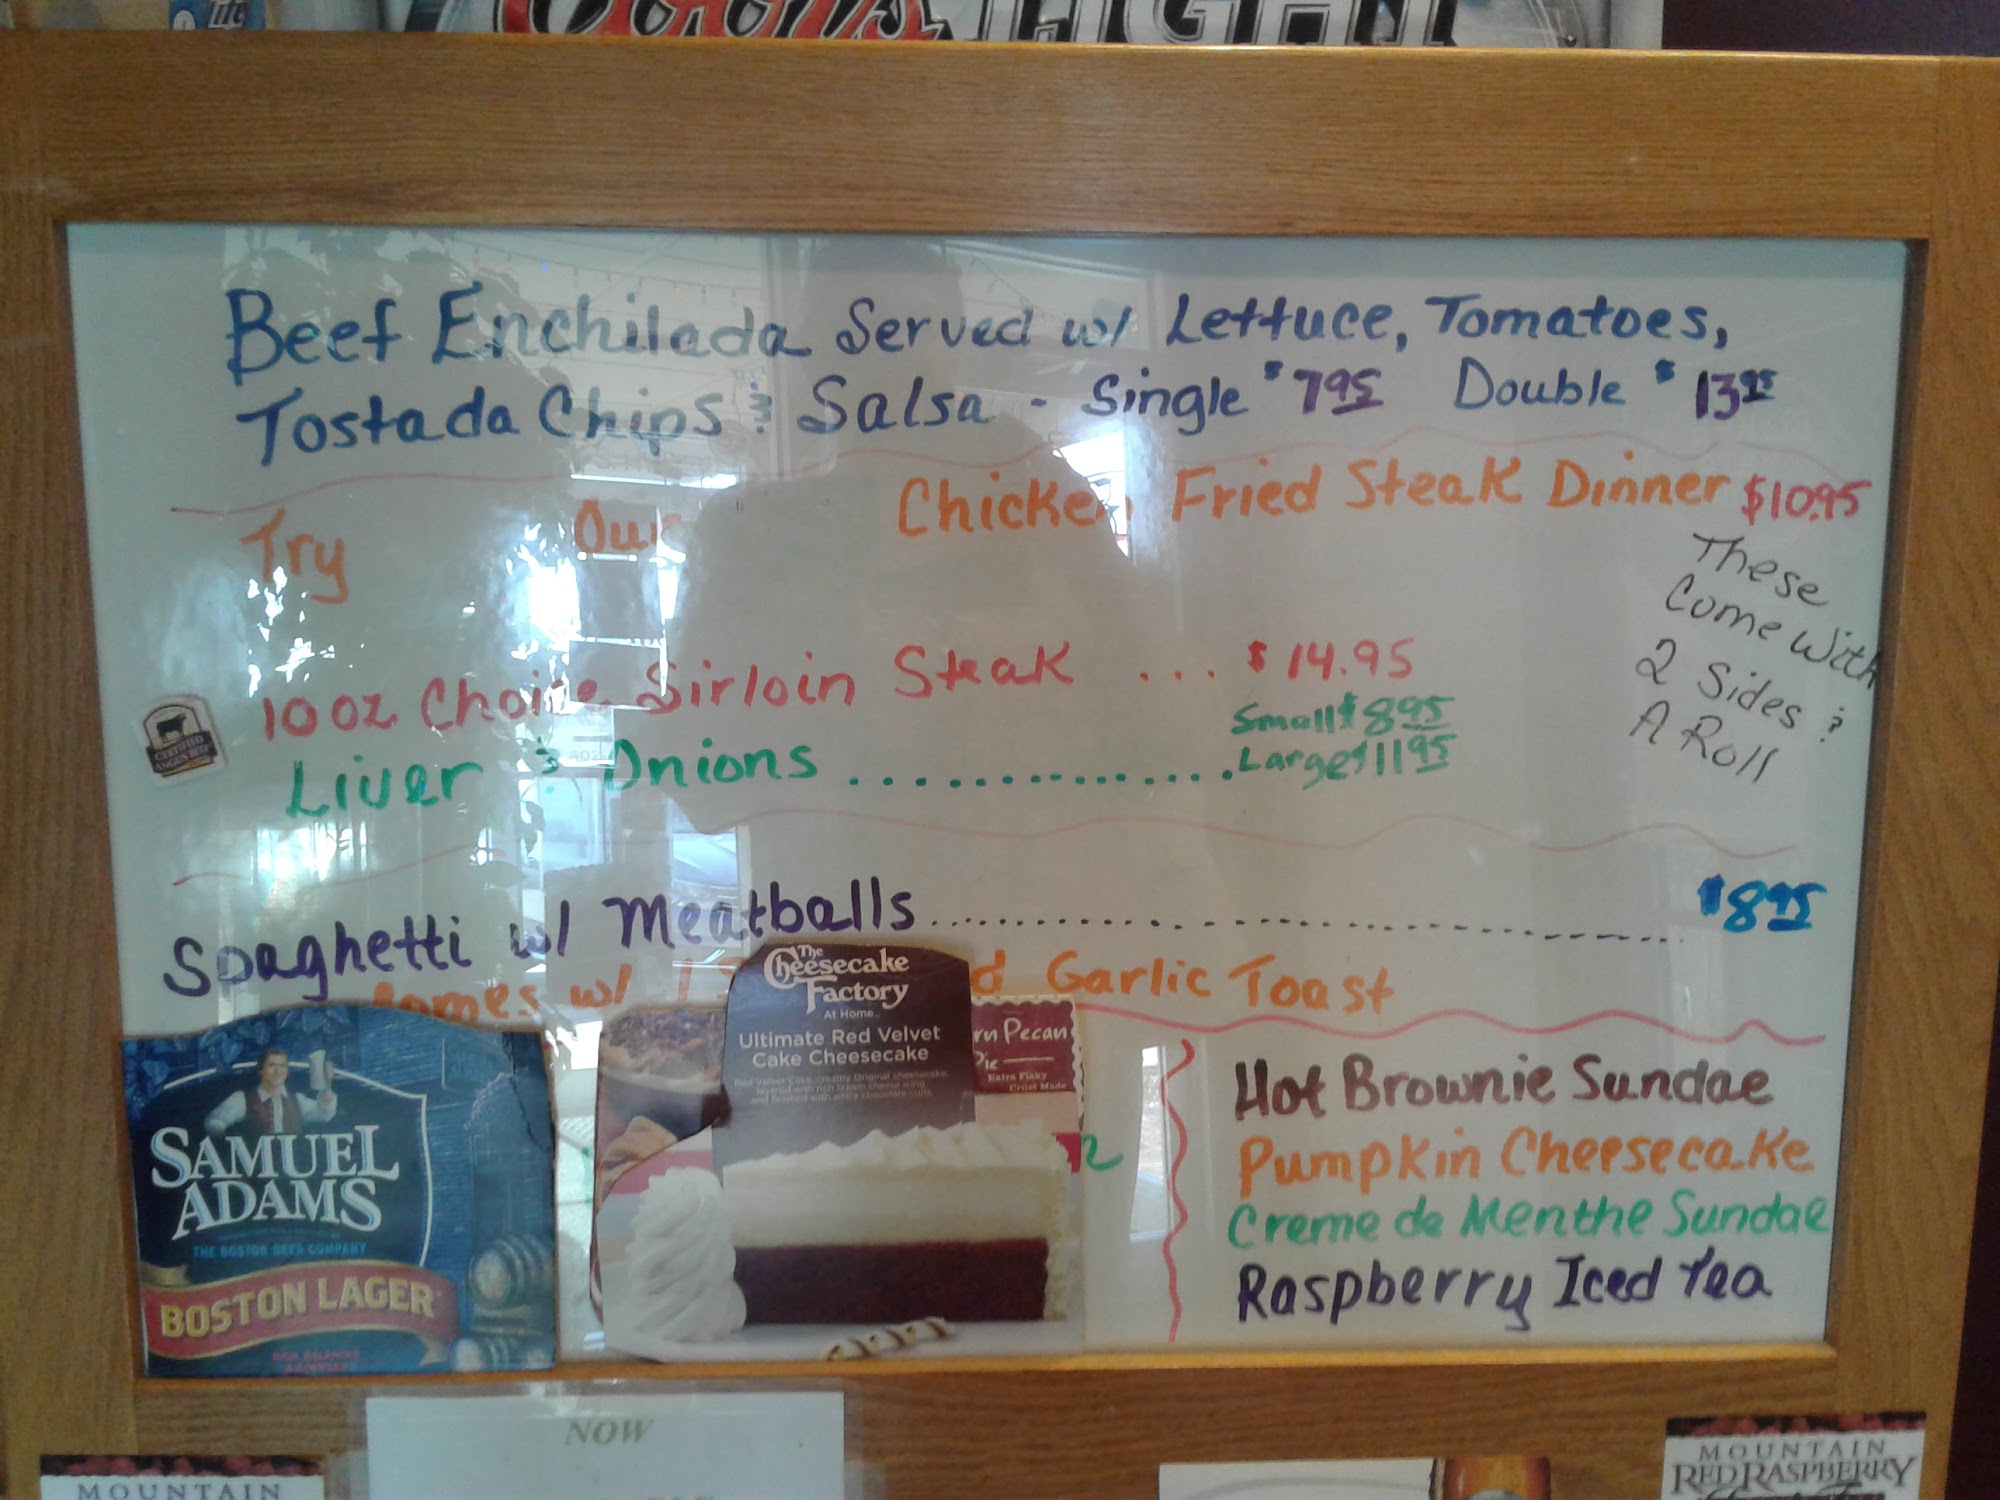 Coors LIGHT
Beef Enchilada Served w/ Lettuce, Tomatoes,
Tostada Chips & Salsa - Single $7.95 Double $13.95
Try Our Chicken Fried Steak Dinner $10.95
These
Come With
2 Sides &
A Roll
10 oz Choice Sirloin Steak ... $14.95
CERTIFIED
ANGUS BEEF
Liver & Onions .............. Small $8.95
Large $11.95
Spaghetti w/ Meatballs .............................. $8.95
Comes w/ 1 Garlic Toast
The
Cheesecake
Factory
At Home
Ultimate Red Velvet
Cake Cheesecake
Pecan
Pie
Extra Flaky
Crust Made
SAMUEL
ADAMS
THE BOSTON BEER COMPANY
BOSTON LAGER
Hot Brownie Sundae
Pumpkin Cheesecake
Creme de Menthe Sundae
Raspberry Iced Tea
NOW
MOUNTAIN
MOUNTAIN
RED RASPBERRY